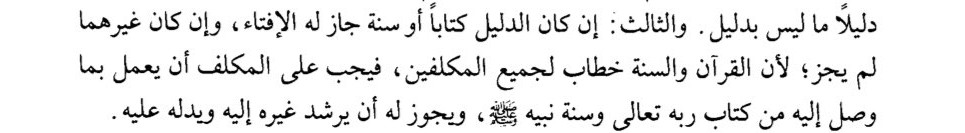 دليلاً ما ليس بدليل. والثالث: إن كان الدليل كتاباً أو سنة جاز له الإفتاء، وإن كان غيرهما
لم يجز؛ لأن القرآن والسنة خطاب لجميع المكلفين، فيجب على المكلف أن يعمل بما
وصل إليه من كتاب ربه تعالى وسنة نبيه ﷺ، ويجوز له أن يرشد غيره إليه ويدله عليه.